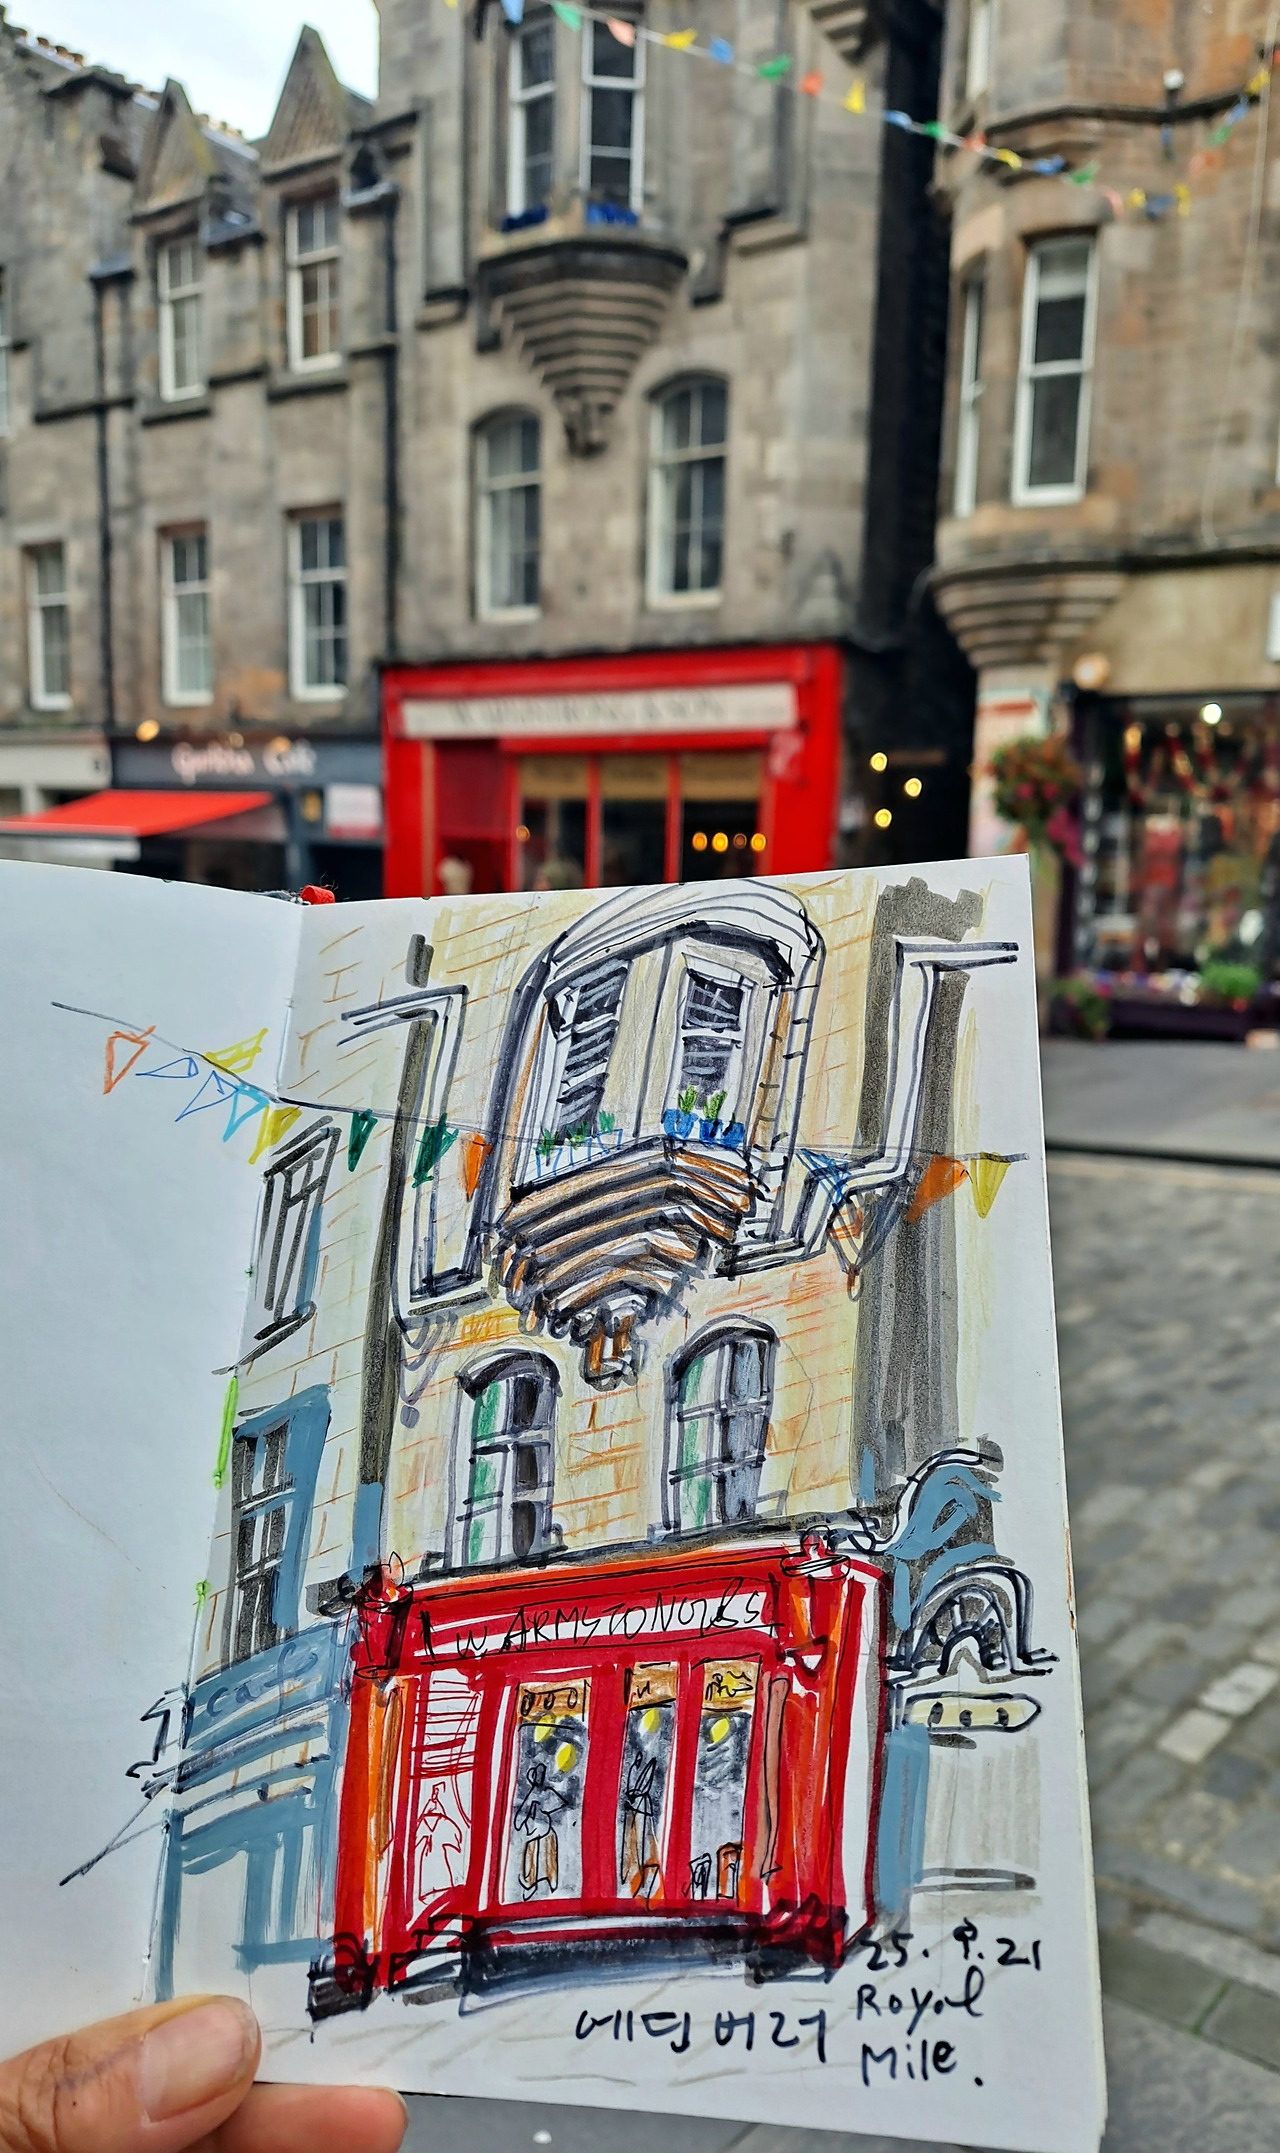 W. ARMSTRONG & SON
W ARMSTONG & S
cafe
25. 9. 21
에딘버러
Royal
Mile.